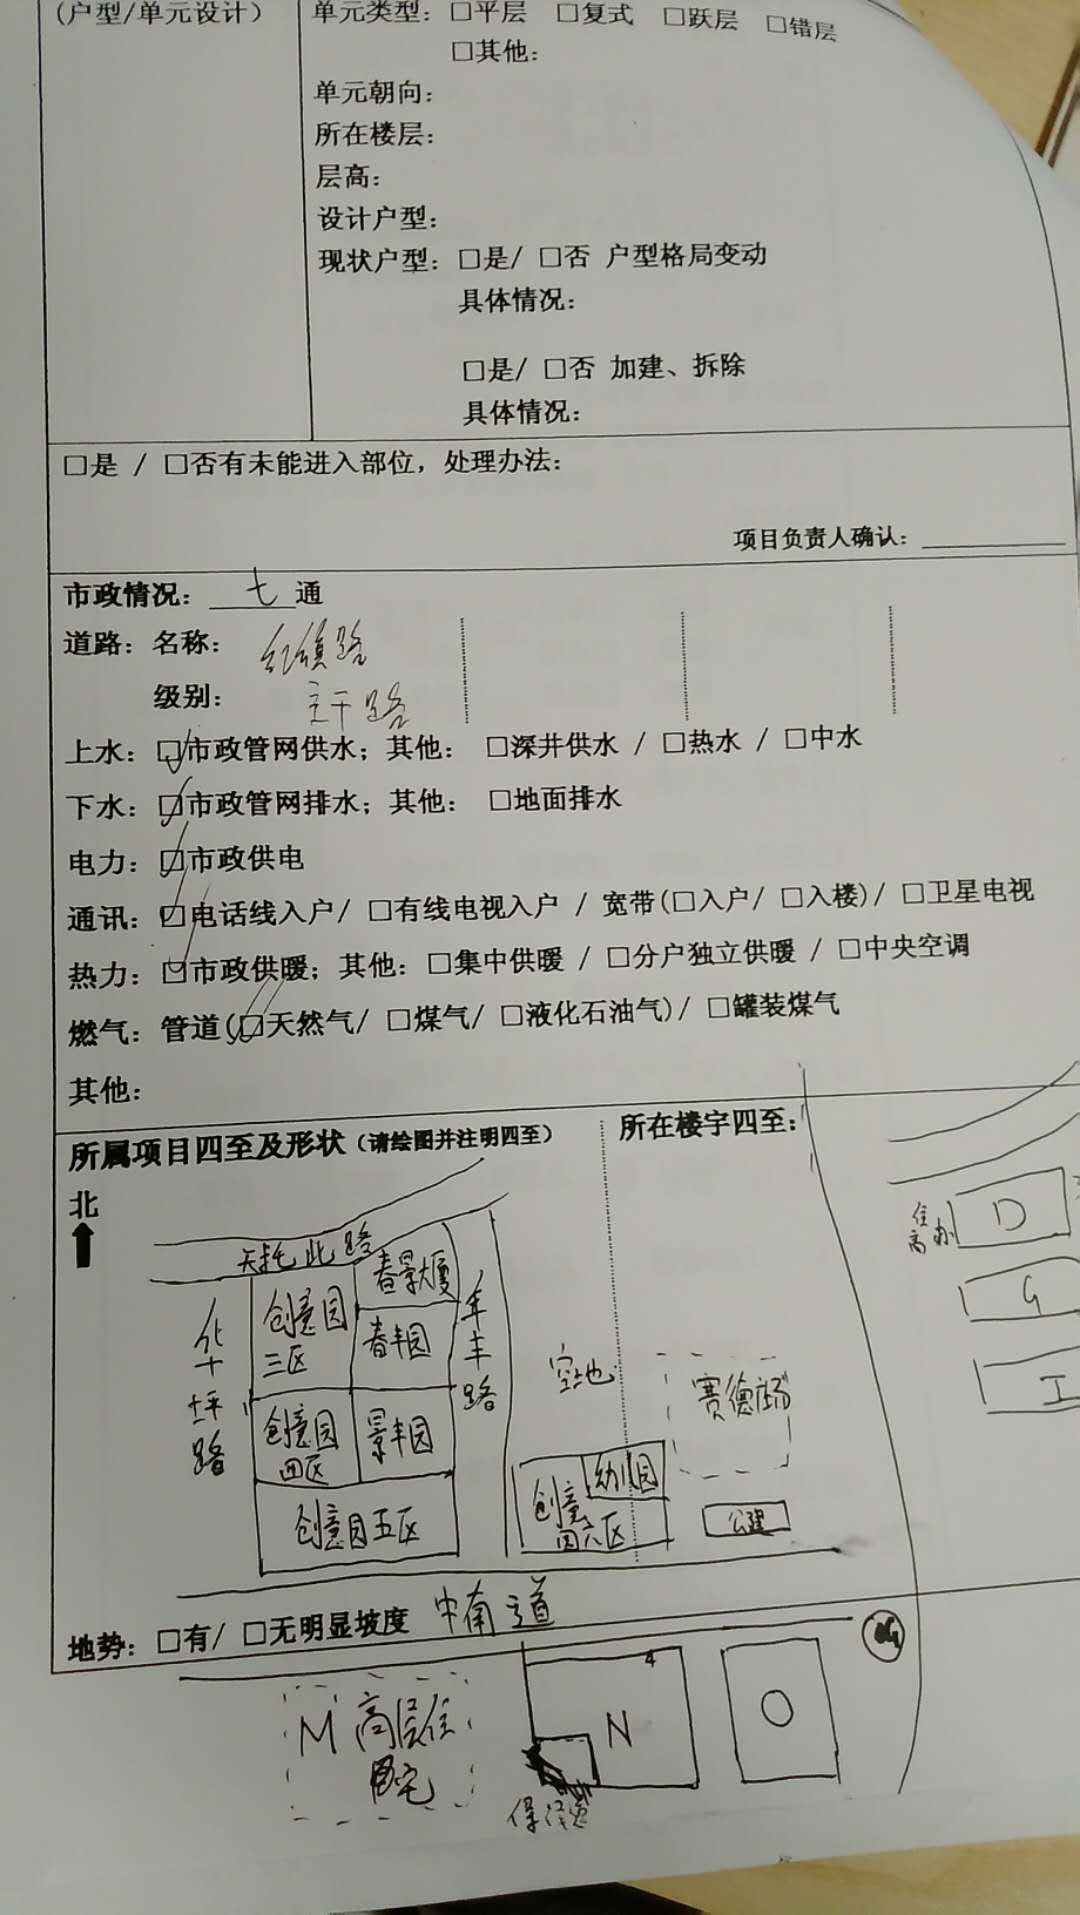 (户型/单元设计)
单元类型：□平层 □复式 □跃层 □错层
□其他：
单元朝向：
所在楼层：
层高：
设计户型：
现状户型：□是/ □否 户型格局变动
具体情况：
□是/ □否 加建、拆除
具体情况：
□是 / □否有未能进入部位，处理办法：
项目负责人确认：
市政情况：七通
道路：名称：红旗路
级别：主干路
上水：☑市政管网供水；其他： □深井供水 / □热水 / □中水
下水：☑市政管网排水；其他： □地面排水
电力：☑市政供电
通讯：☑电话线入户/ □有线电视入户 / 宽带(□入户/ □入楼)/ □卫星电视
热力：☑市政供暖；其他：□集中供暖 / □分户独立供暖 / □中央空调
燃气：管道(☑天然气/ □煤气/ □液化石油气)/ □罐装煤气
其他：
所属项目四至及形状（请绘图并注明四至）
所在楼宇四至：
北
天托北路
华坪路
创意园三区
春景大厦
春丰园
年丰路
创意园四区
景丰园
创意园五区
空地
幼儿园
创意园六区
赛德广场
公建
D
G
工
中南道
地势：□有/ □无明显坡度
M 高层住宅
N
O